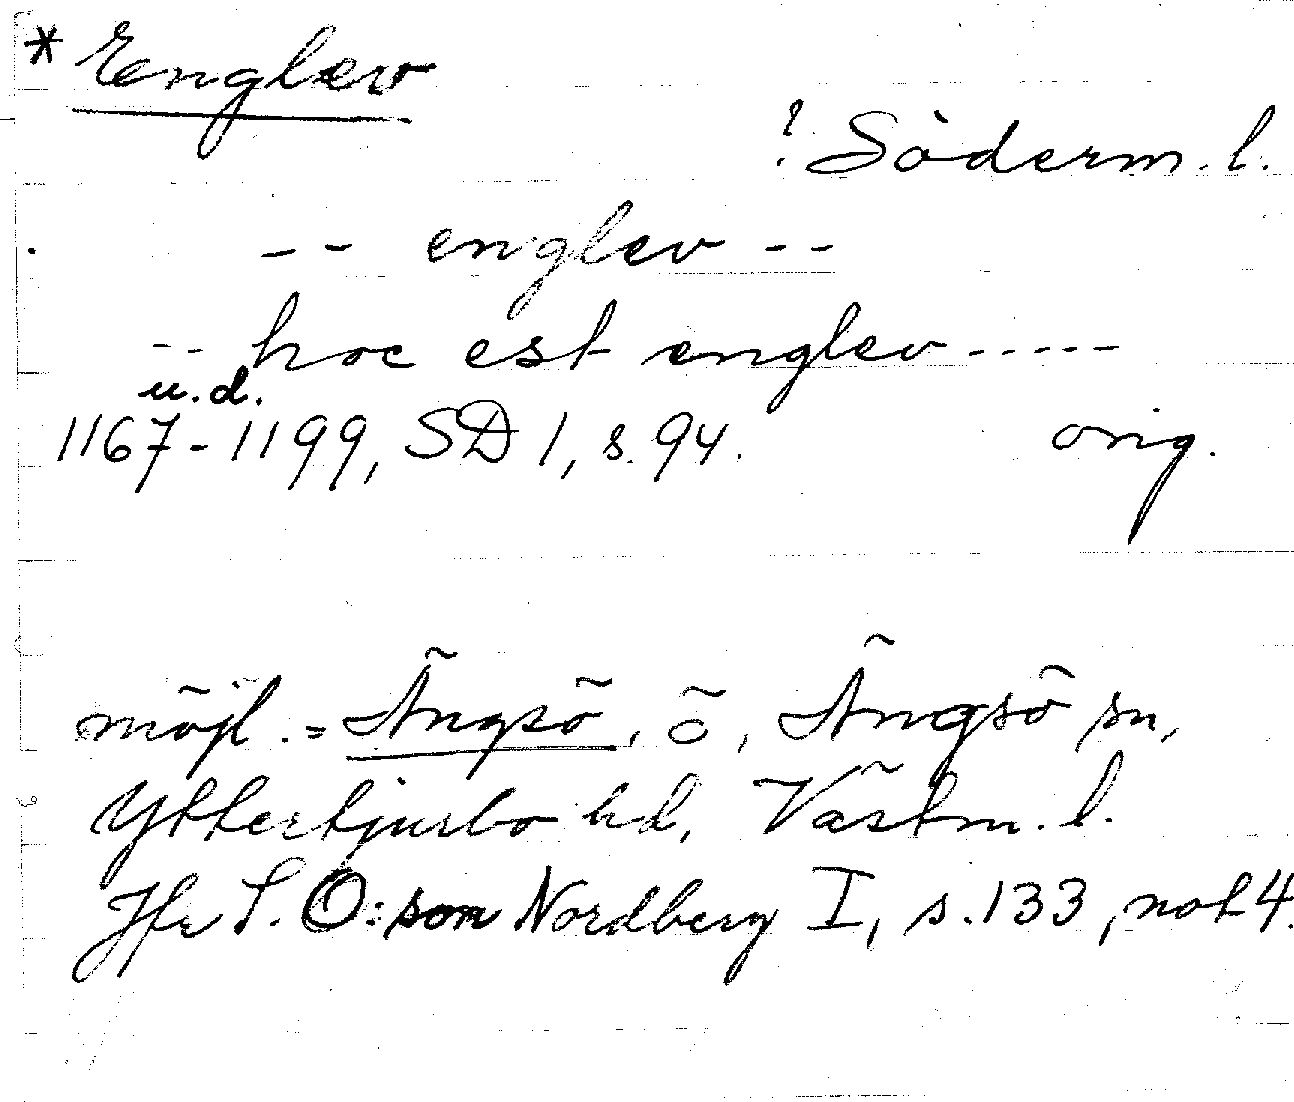 * Englæv
? Söderm. l.
-- englev --
-- hoc est englev -----
u.d.
1167-1199, SD 1, s. 94. orig.
möjl. = Ängsö, ö, Ängsö sn,
Yttertjurbo hd, Västm. l.
Jfr S. O:son Nordberg I, s. 133, not 4.